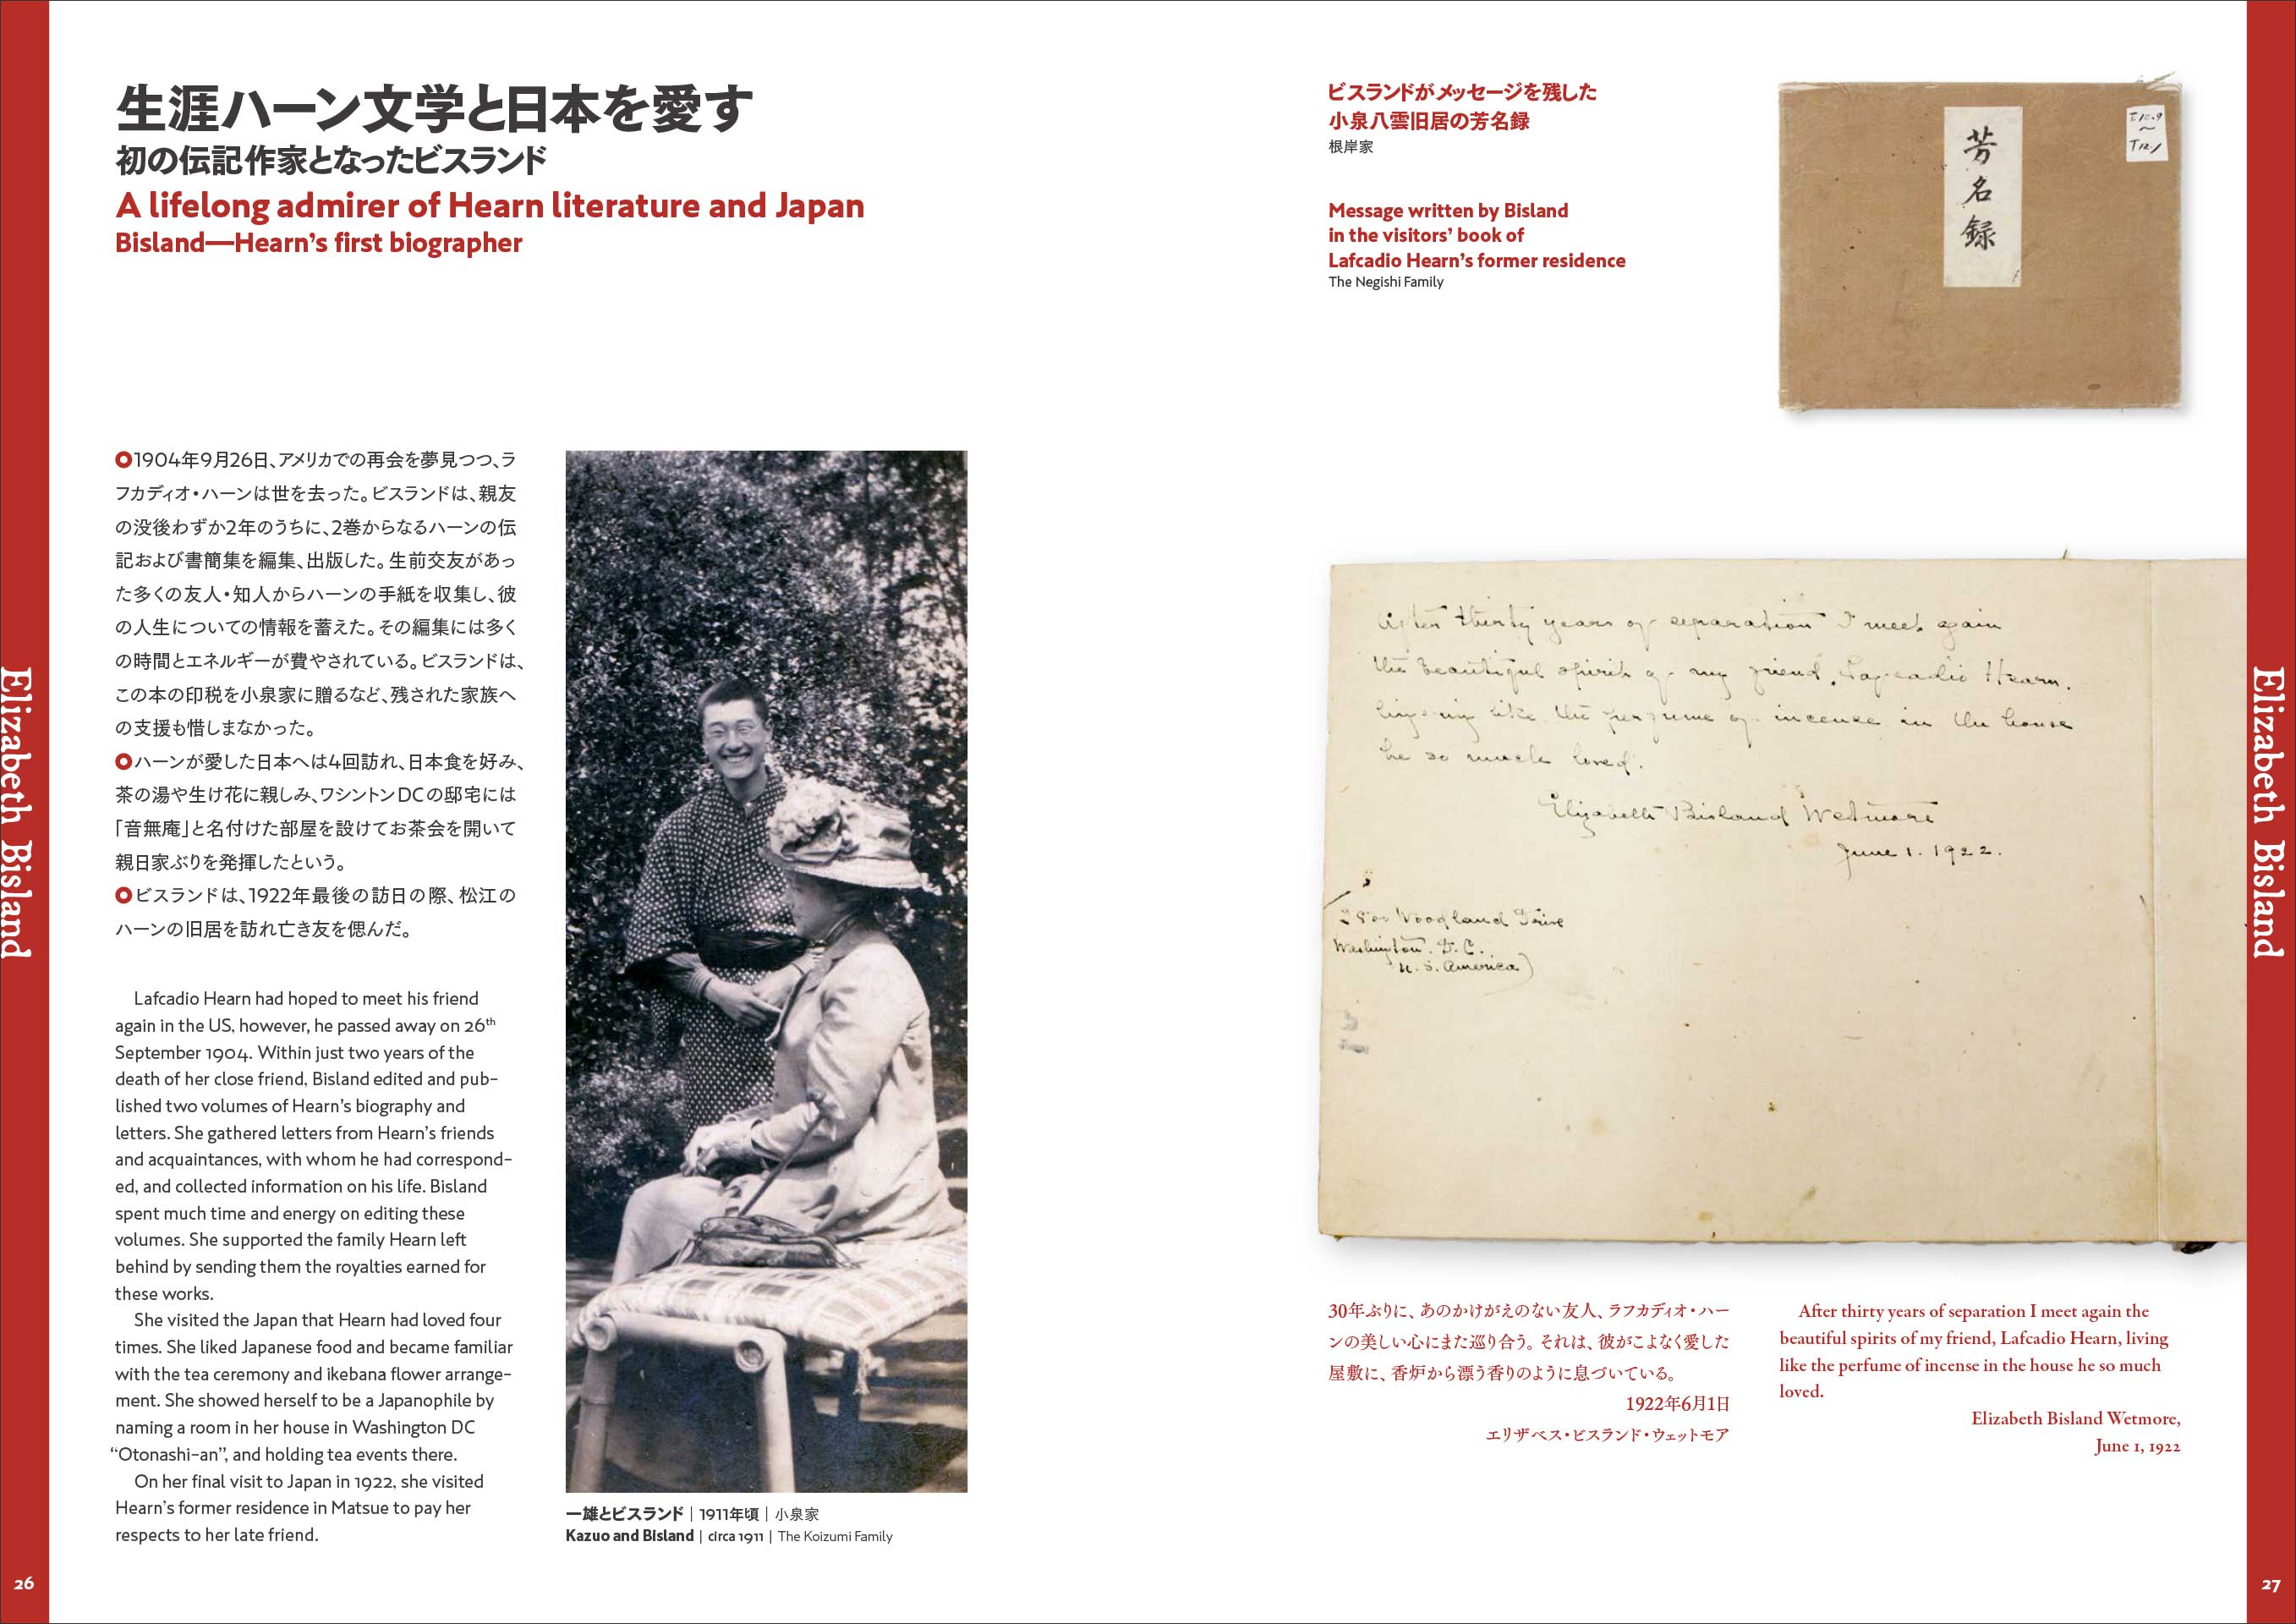 Elizabeth Bisland
生涯ハーン文学と日本を愛す
初の伝記作家となったビスランド
A lifelong admirer of Hearn literature and Japan
Bisland—Hearn's first biographer
1904年9月26日、アメリカでの再会を夢見つつ、ラ
フカディオ・ハーンは世を去った。ビスランドは、親友
の没後わずか2年のうちに、2巻からなるハーンの伝
記および書簡集を編集、出版した。生前交友があっ
た多くの友人・知人からハーンの手紙を収集し、彼
の人生についての情報を蓄えた。その編集には多く
の時間とエネルギーが費やされている。ビスランドは、
この本の印税を小泉家に贈るなど、残された家族へ
の支援も惜しまなかった。
ハーンが愛した日本へは4回訪れ、日本食を好み、
茶の湯や生け花に親しみ、ワシントンDCの邸宅には
「音無庵」と名付けた部屋を設けてお茶会を開いて
親日家ぶりを発揮したという。
ビスランドは、1922年最後の訪日の際、松江の
ハーンの旧居を訪れ亡き友を偲んだ。
Lafcadio Hearn had hoped to meet his friend
again in the US, however, he passed away on 26th
September 1904. Within just two years of the
death of her close friend, Bisland edited and pub-
lished two volumes of Hearn's biography and
letters. She gathered letters from Hearn's friends
and acquaintances, with whom he had correspond-
ed, and collected information on his life. Bisland
spent much time and energy on editing these
volumes. She supported the family Hearn left
behind by sending them the royalties earned for
these works.
She visited the Japan that Hearn had loved four
times. She liked Japanese food and became familiar
with the tea ceremony and ikebana flower arrange-
ment. She showed herself to be a Japanophile by
naming a room in her house in Washington DC
“Otonashi-an”, and holding tea events there.
On her final visit to Japan in 1922, she visited
Hearn's former residence in Matsue to pay her
respects to her late friend.
一雄とビスランド｜1911年頃｜小泉家
Kazuo and Bisland | circa 1911 | The Koizumi Family
26
ビスランドがメッセージを残した
小泉八雲旧居の芳名録
根岸家
Message written by Bisland
in the visitors' book of
Lafcadio Hearn's former residence
The Negishi Family
芳名録
T.10.9
～
T12.1
After thirty years of separation I meet again
the beautiful spirit of my friend, Lafcadio Hearn,
like the perfume of incense in the house
he so much loved.
Elizabeth Bisland Wetmore
June 1. 1922.
Woodland Drive
Washington. D.C.
U.S. America)
30年ぶりに、あのかけがえのない友人、ラフカディオ・ハー
ンの美しい心にまた巡り合う。それは、彼がこよなく愛した
屋敷に、香炉から漂う香りのように息づいている。
1922年6月1日
エリザベス・ビスランド・ウェットモア
After thirty years of separation I meet again the
beautiful spirits of my friend, Lafcadio Hearn, living
like the perfume of incense in the house he so much
loved.
Elizabeth Bisland Wetmore,
June 1, 1922
Elizabeth Bisland
27